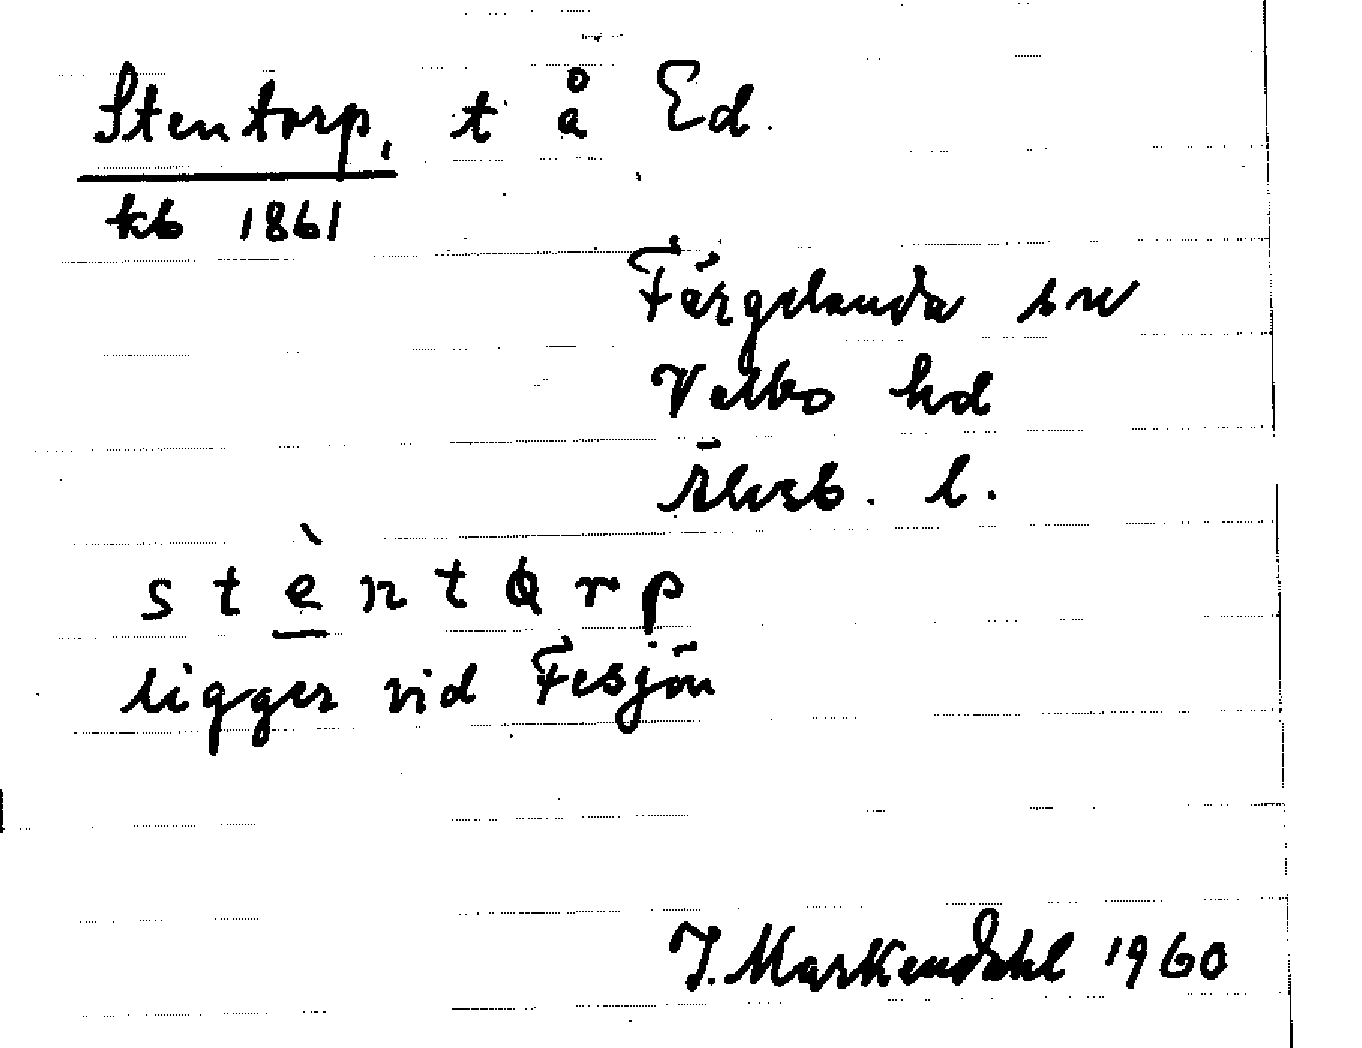 Stentorp, t å Ed.
kb 1861
Färgelanda sn
Valbo hd
Älvsb. l.
stèntɷrp
ligger vid Fesjön
J. Markendahl 1960